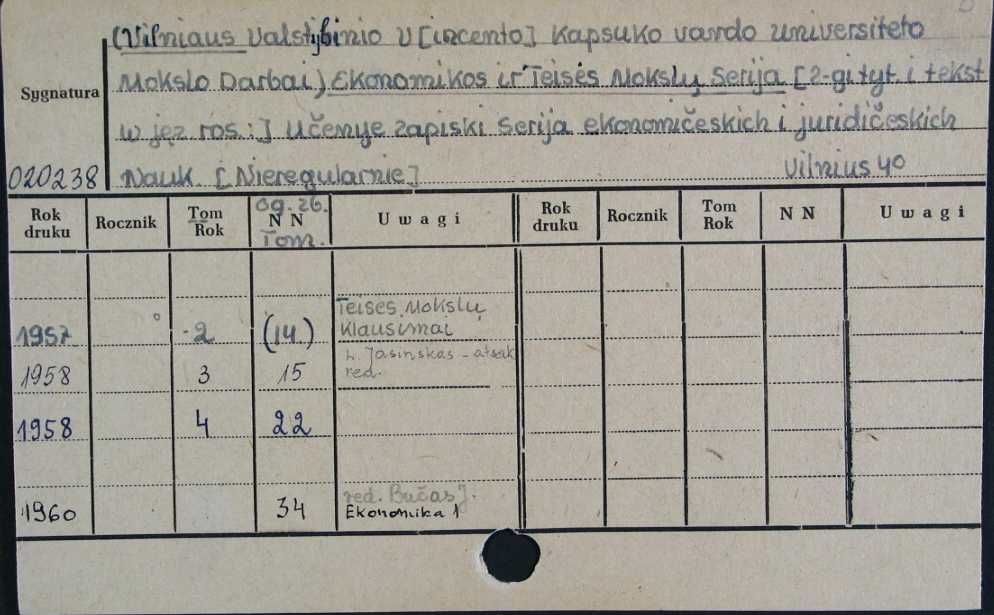 (Vilniaus Valstybinio V[incento] Kapsuko vardo Universiteto
Mokslo Darbai) Ekonomikos ir Teisės Mokslų Serija [2-gi tyt. i tekst
w jęz ros.:] Učenye zapiski Serija ekonomičeskich i juridičeskich
Nauk. [Nieregularnie] Vilnius 40
Sygnatura
020238
Rok druku Rocznik Tom Rok og. 26. N N Tom. Uwagi Rok druku Rocznik Tom Rok N N Uwagi
1957 2 (14.) Teisės Mokslų Klausimai
1958 3 15 L. Jasinskas - atsak red.
1958 4 22
1960 34 red. Bučas J. Ekonomika 1